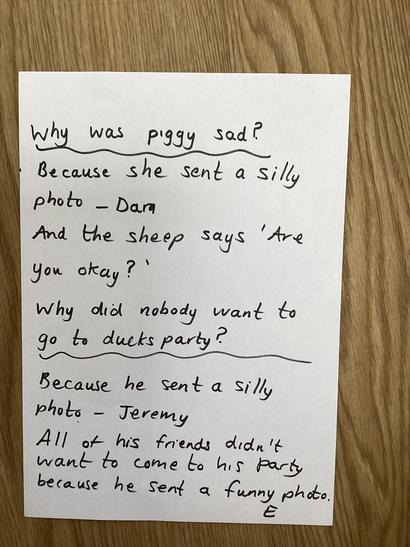 Why was piggy sad?
Because she sent a silly
photo – Dara
And the sheep says 'Are
you okay?'
Why did nobody want to
go to ducks party?
Because he sent a silly
photo – Jeremy
All of his friends didn't
want to come to his party
because he sent a funny photo.
E